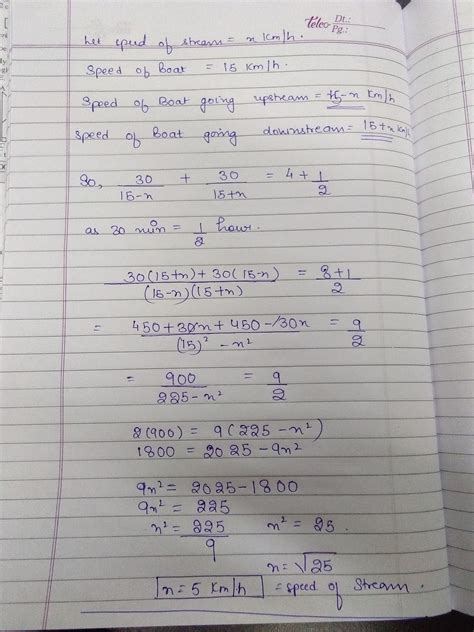 teleo Dt.:
Pg.:
let speed of stream = x Km/h.
Speed of Boat = 15 Km/h.
Speed of Boat going upstream = 15-x Km/h
Speed of Boat going downstream = 15+x Km/h
So, 30/15-x + 30/15+x = 4 + 1/2
as 30 min = 1/2 hour.
30(15+x) + 30(15-x)/(15-x)(15+x) = 8+1/2
= 450+30x+450-30x/(15)² - x² = 9/2
= 900/225-x² = 9/2
2(900) = 9(225-x²)
1800 = 2025-9x²
9x² = 2025-1800
9x² = 225
x² = 225/9 x² = 25.
x = √25
x = 5 Km/h = speed of Stream.